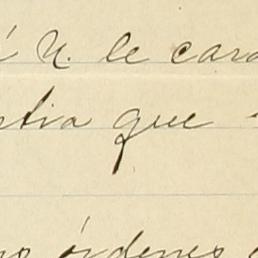 á U. le cara
stia que
us órdenes